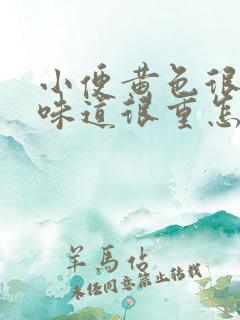 小便黄色很
味道很重怎
羊馬佔
未经同意禁止转载